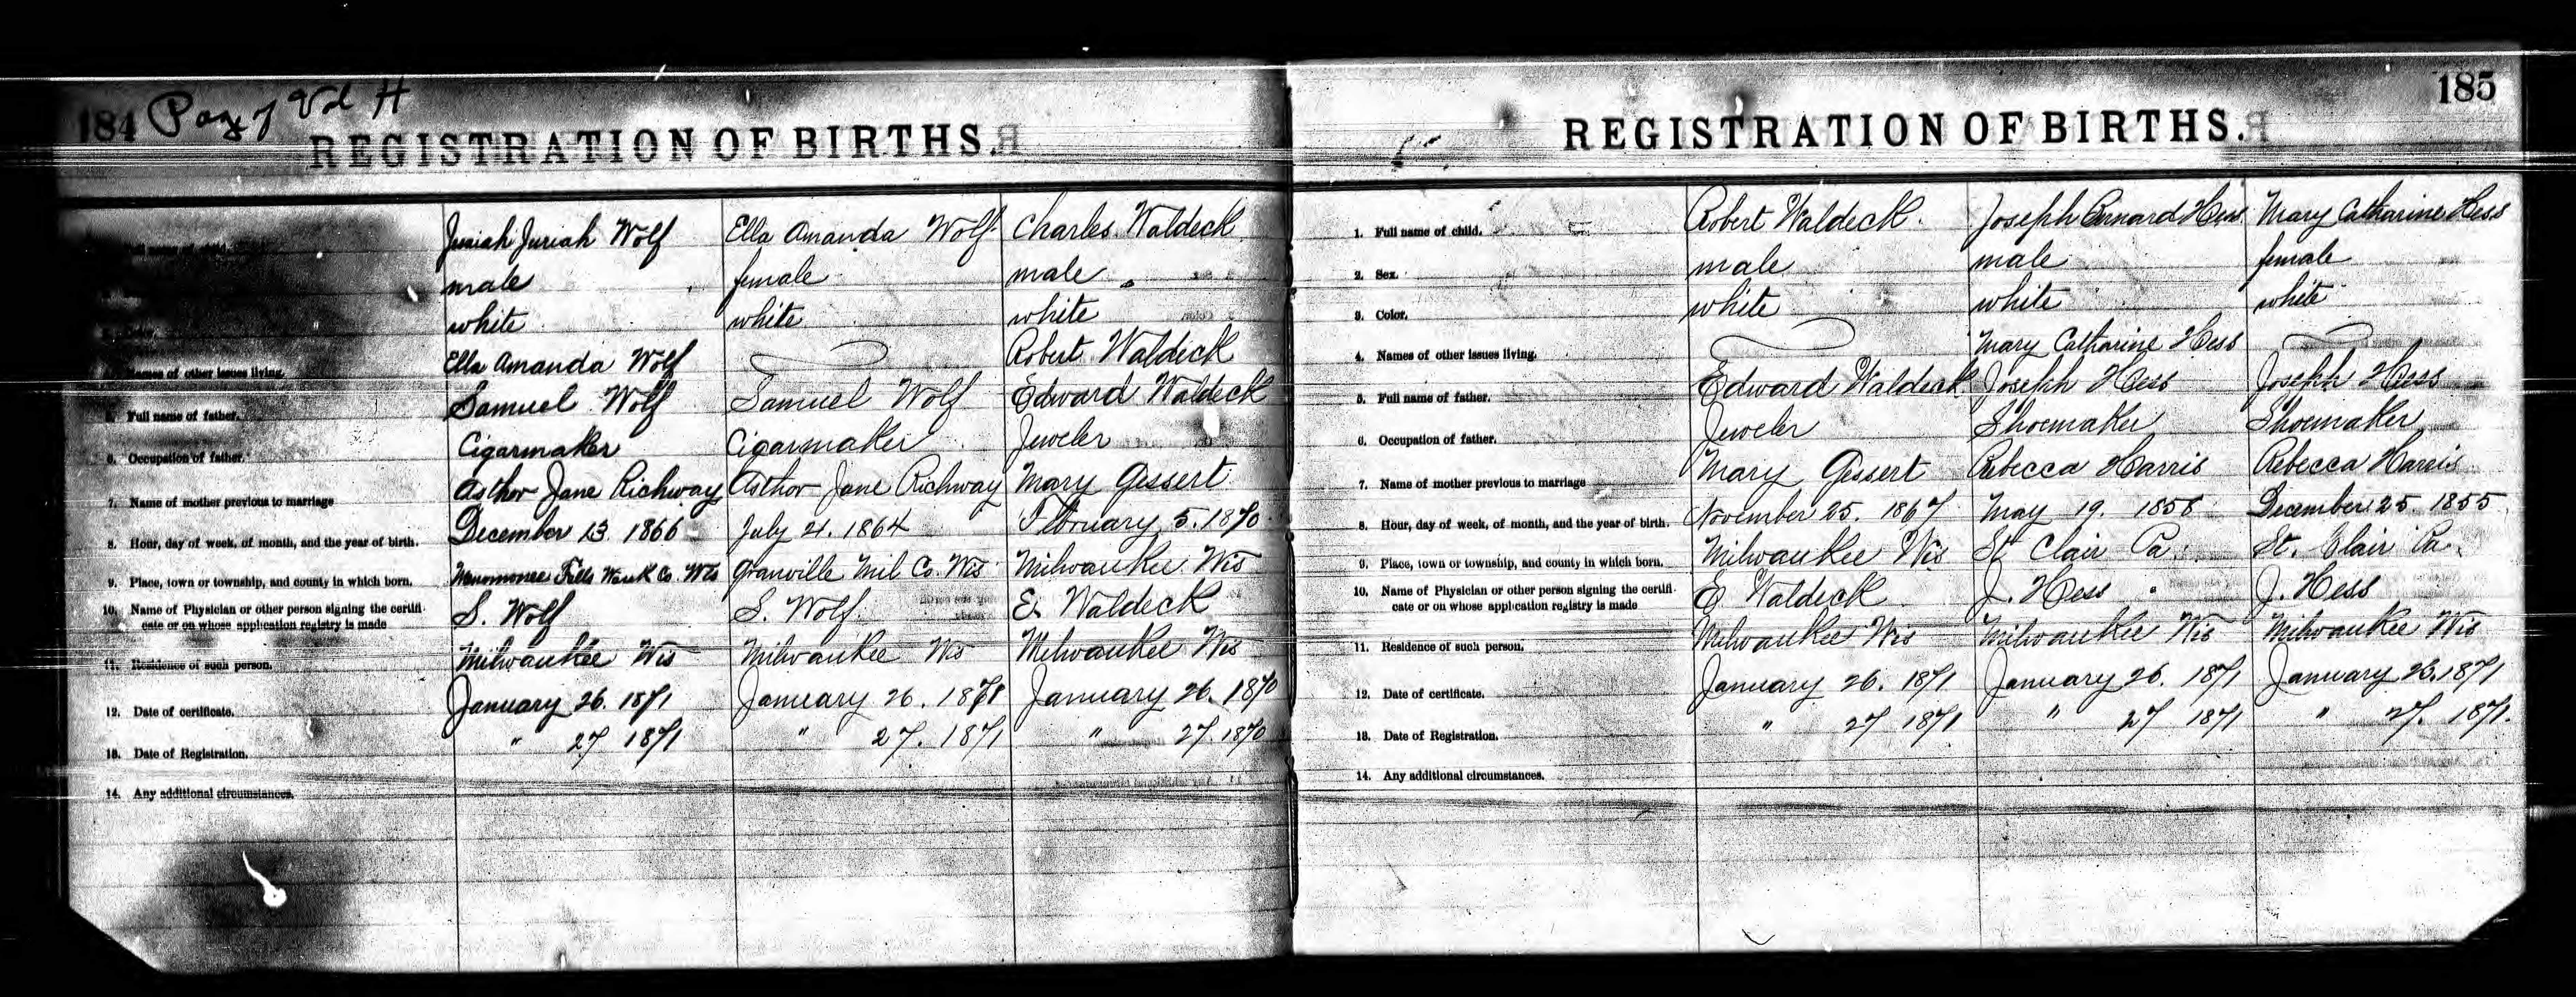 184 Page 7 Vol H
REGISTRATION OF BIRTHS.
Josiah Juriah Wolf Ella Amanda Wolf Charles Waldeck
male female male
white white white
Names of other issues living. Ella Amanda Wolf Robert Waldeck
5. Full name of father. Samuel Wolf Samuel Wolf Edward Waldeck
6. Occupation of father. Cigarmaker Cigarmaker Jeweler
7. Name of mother previous to marriage Asthor Jane Richway Asthor Jane Richway Mary Gessert
8. Hour, day of week, of month, and the year of birth. December 13. 1866 July 21. 1864 February 5. 1870
9. Place, town or township, and county in which born. Menomonee Falls Wauk Co. Wis Granville Mil Co. Wis Milwaukee Wis
10. Name of Physician or other person signing the certifi-
cate or on whose application registry is made S. Wolf S. Wolf. E. Waldeck
11. Residence of such person. Milwaukee Wis Milwaukee Wis Milwaukee Wis
12. Date of certificate. January 26. 1871 January 26. 1871 January 26. 1870
13. Date of Registration. " 27 1871 " 27. 1871 " 27. 1870
14. Any additional circumstances.
185
REGISTRATION OF BIRTHS.
1. Full name of child. Robert Waldeck. Joseph Bernard Hess Mary Catharine Hess
2. Sex. male male female
3. Color. white white white
4. Names of other issues living. Mary Catharine Hess
5. Full name of father. Edward Waldeck Joseph Hess Joseph Hess
6. Occupation of father. Jeweler Shoemaker Shoemaker
7. Name of mother previous to marriage Mary Gessert Rebecca Harris Rebecca Harris
8. Hour, day of week, of month, and the year of birth. November 25. 1867 May 19. 1858 December 25. 1855
9. Place, town or township, and county in which born. Milwaukee Wis St. Clair Pa. St. Clair Pa.
10. Name of Physician or other person signing the certifi-
cate or on whose application registry is made E Waldeck J. Hess J. Hess
11. Residence of such person. Milwaukee Wis Milwaukee Wis Milwaukee Wis
12. Date of certificate. January 26. 1871 January 26. 1871 January 26. 1871
13. Date of Registration. " 27 1871 " 27 1871 " 27. 1871.
14. Any additional circumstances.